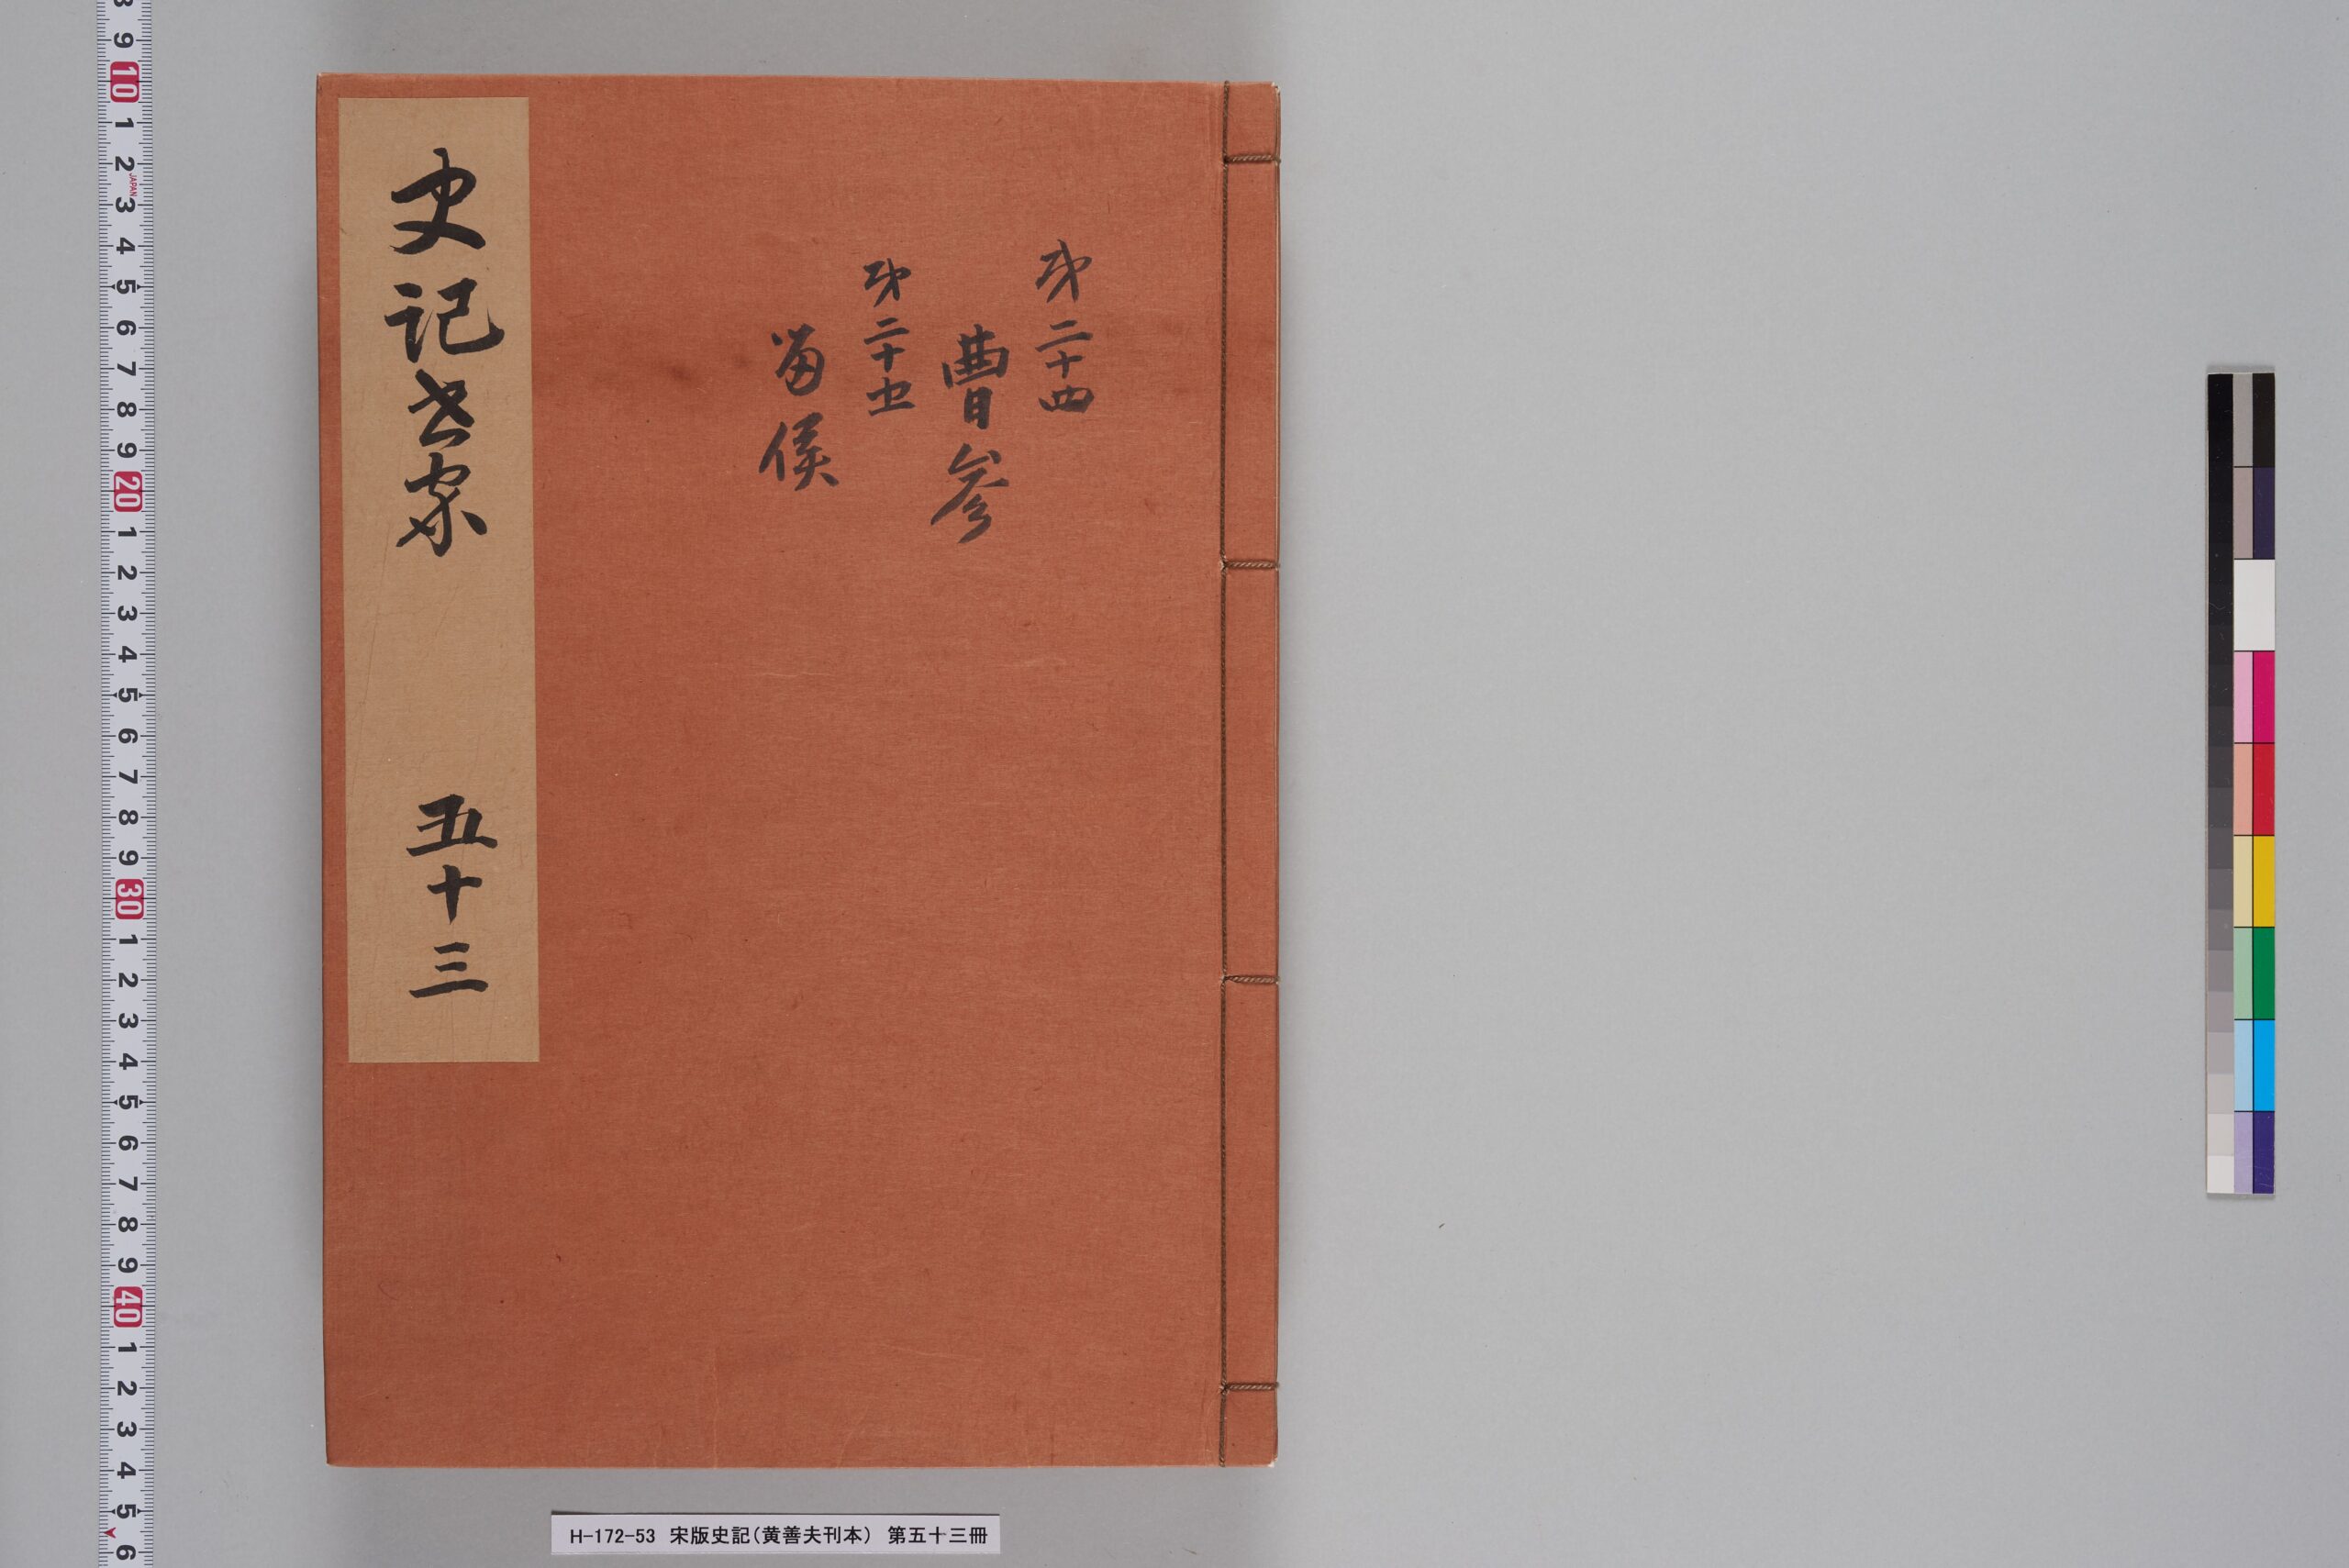 第二十四
曹参
第二十五
留侯
史記世家 五十三
H-172-53 宋版史記(黄善夫刊本) 第五十三冊
8 9 10 1 2 3 4 5 6 7 8 9 20 1 2 3 4 5 6 7 8 9 30 1 2 3 4 5 6 7 8 9 40 1 2 3 4 5 6
JAPAN